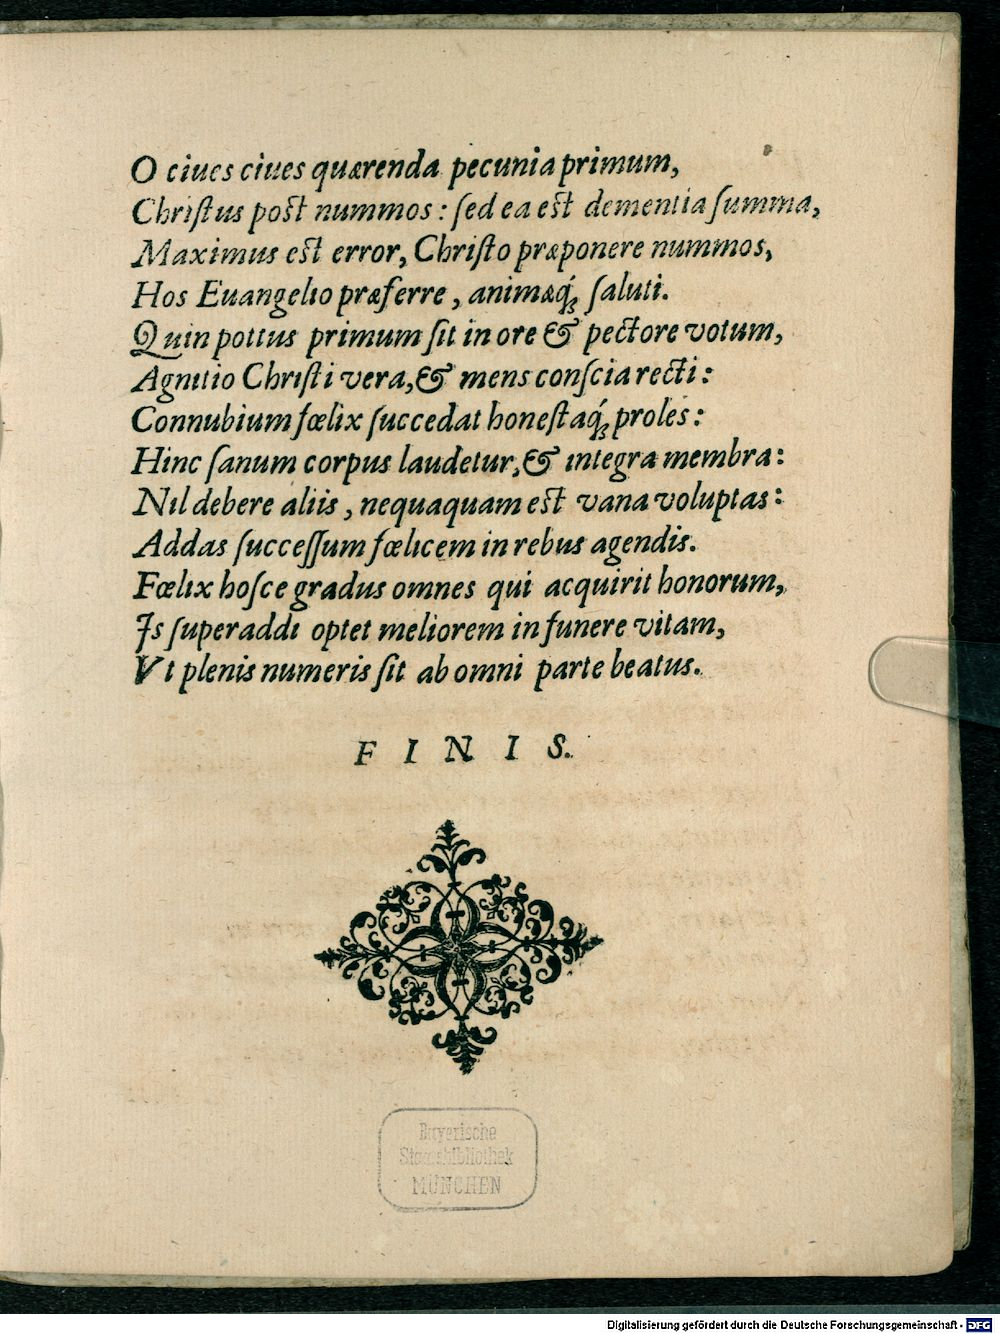 O ciues ciues quærenda pecunia primum,
Chriſtus poſt nummos: ſed ea eſt dementia ſumma,
Maximus eſt error, Chriſto præponere nummos,
Hos Euangelio præferre, animæq́; ſaluti.
Quin potius primum ſit in ore & pectore votum,
Agnitio Chriſti vera, & mens conſcia recti:
Connubium fœlix ſuccedat honeſtaq́; proles:
Hinc ſanum corpus laudetur, & integra membra:
Nil debere aliis, nequaquam eſt vana voluptas:
Addas ſucceſſum fœlicem in rebus agendis.
Fœlix hoſce gradus omnes qui acquirit honorum,
Is ſuperaddi optet meliorem in funere vitam,
Vt plenis numeris ſit ab omni parte beatus.
F I N I S.
Bayerische
Staatsbibliothek
MÜNCHEN
Digitalisierung gefördert durch die Deutsche Forschungsgemeinschaft - DFG